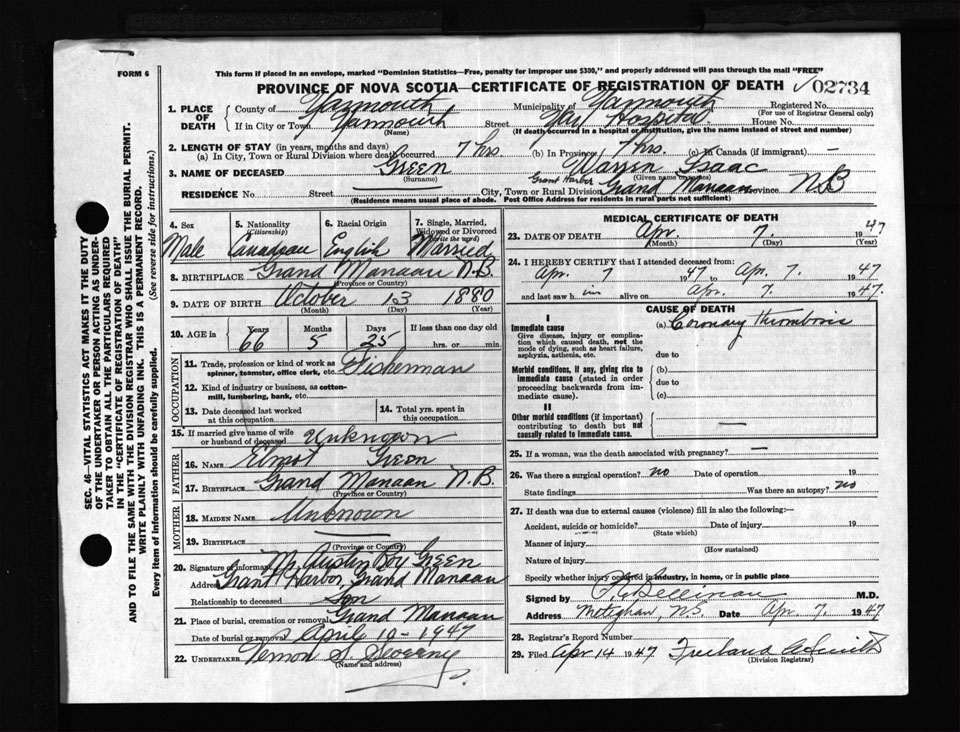 FORM 6
This form if placed in an envelope, marked "Dominion Statistics—Free, penalty for improper use $300," and properly addressed will pass through the mail "FREE"
PROVINCE OF NOVA SCOTIA—CERTIFICATE OF REGISTRATION OF DEATH 02734
1. PLACE OF DEATH
County of Yarmouth Municipality of Yarmouth Registered No.
(For use of Registrar General only)
If in City or Town Yarmouth Street Yar Hospital House No.
(Name) (If death occurred in a hospital or institution, give the name instead of street and number)
2. LENGTH OF STAY (in years, months and days)
(a) In City, Town or Rural Division where death occurred 7 hrs (b) In Province 7 hrs. (c) In Canada (if immigrant) —
3. NAME OF DECEASED Green Warren Isaac
(Surname) (Given name or names)
RESIDENCE No. Street City, Town or Rural Division Grant Harbor Grand Manaan Province N.B
(Residence means usual place of abode. Post Office Address for residents in rural parts not sufficient)
4. Sex Male
5. Nationality (Citizenship) Canadian
6. Racial Origin English
7. Single, Married, Widowed or Divorced (write the word) Married
8. BIRTHPLACE Grand Manaan N.B.
(Province or Country)
9. DATE OF BIRTH October 13 1880
(Month) (Day) (Year)
10. AGE in Years 66 Months 5 Days 25 If less than one day old hrs. or min.
OCCUPATION
11. Trade, profession or kind of work as spinner, teamster, office clerk, etc. Fisherman
12. Kind of industry or business, as cotton-mill, lumbering, bank, etc.
13. Date deceased last worked at this occupation
14. Total yrs. spent in this occupation
15. If married give name of wife or husband of deceased Unknown
FATHER
16. NAME Elmot Green
17. BIRTHPLACE Grand Manaan N.B.
(Province or Country)
MOTHER
18. MAIDEN NAME Unknown
19. BIRTHPLACE —
(Province or Country)
20. Signature of informant Mr Austin Roy Green
Address Grant Harbor, Grand Manaan
Relationship to deceased Son
21. Place of burial, cremation or removal Grand Manaan
Date of burial or removal April 10-1947
22. UNDERTAKER Vernon S.
(Name and address)
MEDICAL CERTIFICATE OF DEATH
23. DATE OF DEATH Apr. 7. 1947
(Month) (Day) (Year)
24. I HEREBY CERTIFY that I attended deceased from:
Apr. 7 1947 to Apr. 7. 1947
and last saw h im alive on Apr. 7. 1947.
CAUSE OF DEATH
I
Immediate cause
Give disease, injury or complication which caused death, not the mode of dying, such as heart failure, asphyxia, asthenia, etc.
(a) Coronary thrombosis
due to
Morbid conditions, if any, giving rise to immediate cause (stated in order proceeding backwards from immediate cause).
(b)
due to
(c)
II
Other morbid conditions (if important) contributing to death but not causally related to immediate cause. —
25. If a woman, was the death associated with pregnancy? —
26. Was there a surgical operation? no Date of operation 19
State findings Was there an autopsy? no
27. If death was due to external causes (violence) fill in also the following:—
Accident, suicide or homicide? Date of injury 19
(State which)
Manner of injury
(How sustained)
Nature of injury
Specify whether injury occurred in industry, in home, or in public place
Signed by M.D.
Address Meteghan, N.S. Date Apr. 7. 1947
28. Registrar's Record Number
29. Filed Apr 14 1947 Freeland A Smith
(Division Registrar)
SEC. 46—VITAL STATISTICS ACT MAKES IT THE DUTY
OF THE UNDERTAKER OR PERSON ACTING AS UNDER-
TAKER TO OBTAIN ALL THE PARTICULARS REQUIRED
IN THE "CERTIFICATE OF REGISTRATION OF DEATH"
AND TO FILE THE SAME WITH THE DIVISION REGISTRAR WHO SHALL ISSUE THE BURIAL PERMIT.
WRITE PLAINLY WITH UNFADING INK. THIS IS A PERMANENT RECORD.
Every item of Information should be carefully supplied. (See reverse side for instructions.)